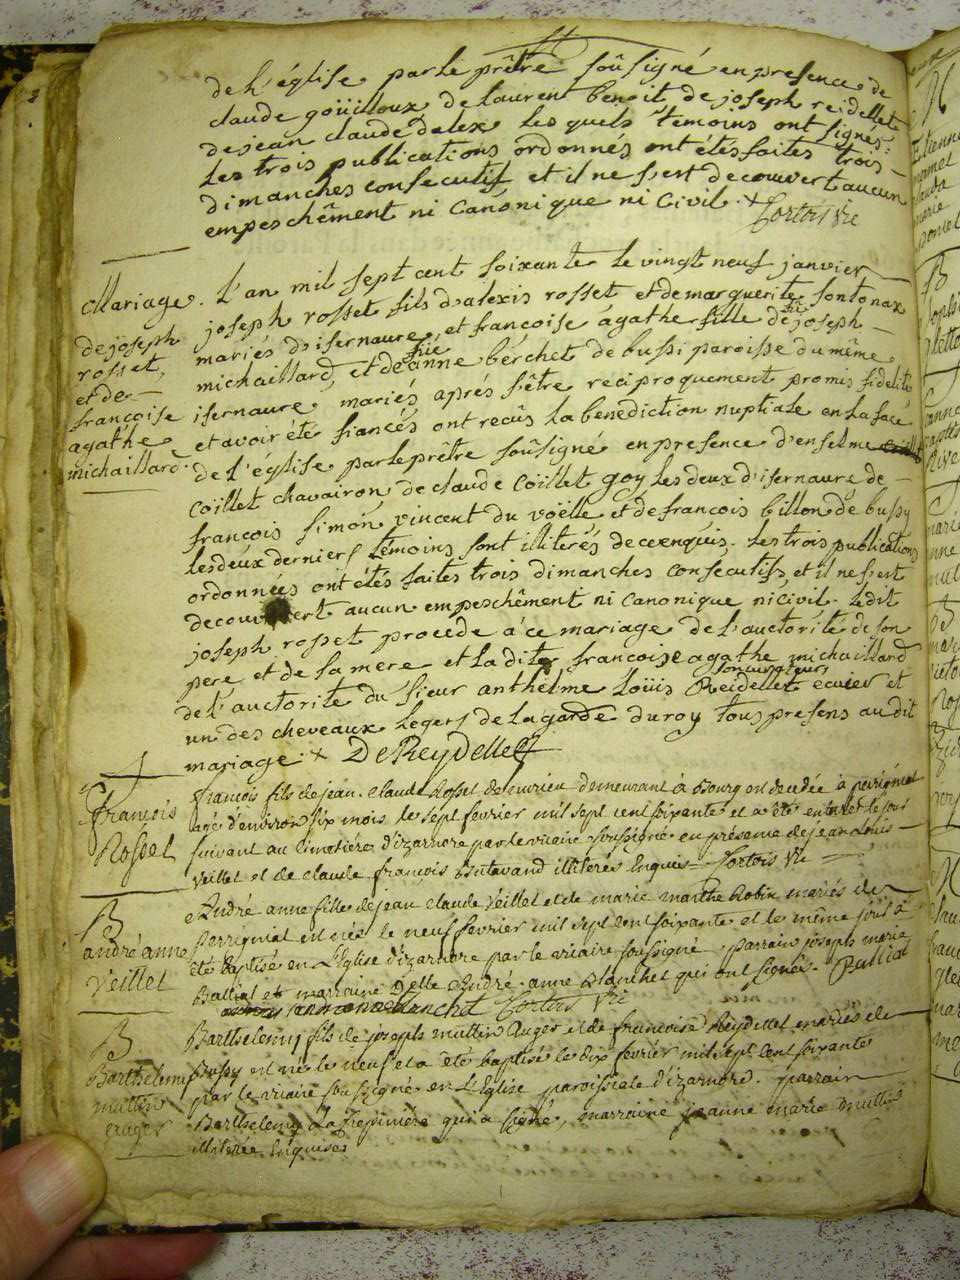 de l'église par le prêtre soûsigné en presence de
claude goüilloux de laurent benoit de joseph reidellet
de jean claude dalex les quels temoins ont signés.
les trois publications ordonnés ont étés faites trois
dimanches consecutifs et il ne s'est decouvert aucun
empeschêment ni canonique ni civil. + Tortois vic
Mariage. L'an mil sept cent soixante le vingt neuf janvier
de joseph joseph rosset fils d'alexis rosset et de marguerite fontonax
rosset, mariés d'isernaure, et françoise agathe fille de feu joseph
et de michaillard, et de anne berchet de bussi paroisse du même
françoise isernaure mariés aprés s'être reciproquement promis fidelité
agathe et avoir été fiancés ont recûs la benediction nuptiale en la face
michaillard. de l'église par le prêtre soûsigné en presence d'enselme
Coillet chavairon, de claude Coillet goy les deux d'isernaure de
françois simon vincent du voëlle et de françois billon de bussy
les deux derniers temoins sont illiterés de ce enquis. les trois publications
ordonnées ont étés faites trois dimanches consecutifs, et il ne s'est
decouvert aucun empeschêment ni canonique ni civil. Ledit
joseph rosset procede à ce mariage de l'auctorité de son
pere et de sa mere et la dite françoise agathe michaillard
de l'auctorité du sieur anthelme loüis Reidellet son curateur écuier et
un des chevaux legers de la garde du roy tous presens au dit
mariage + De Reydellet
françois françois fils de jean claude Rosset de curieu demeurant à Bourg est decedée à perignat
agé d'environ six mois le sept fevrier mil sept cent soixante et a été enterré le jour
Rosset suivant au cimetière d'izarnore par le vicaire soussigné en présence de jean Louis
Veillet et de claude françois Butavand illiterés enquis Tortois vic
B André anne fille de jean claude Veillet et de marie marthe Robin mariés de
andré anne Perrigniat est née le neuf fevrier mil sept cent soixante et le même jour a
Veillet été baptisé en l'Eglise d'izarnore par le vicaire soussigné. parrain joseph marie
Balliat et marraine delle André-anne Blanchet qui ont signés. Balliat
anne blanchet Tortois vic
B Barthelemy fils de joseph mullin auger et de françoise Reydellet mariés de
Barthelemi Bussy est né le neuf et a été baptisé le dix fevrier mil sept cent soixante
mullin par le vicaire soussigné en l'Eglise paroissiale d'izarnore. parrain
auger Barthelemy La fregnniere qui a signé, marraine jeanne marie mullin
illiterée enquise